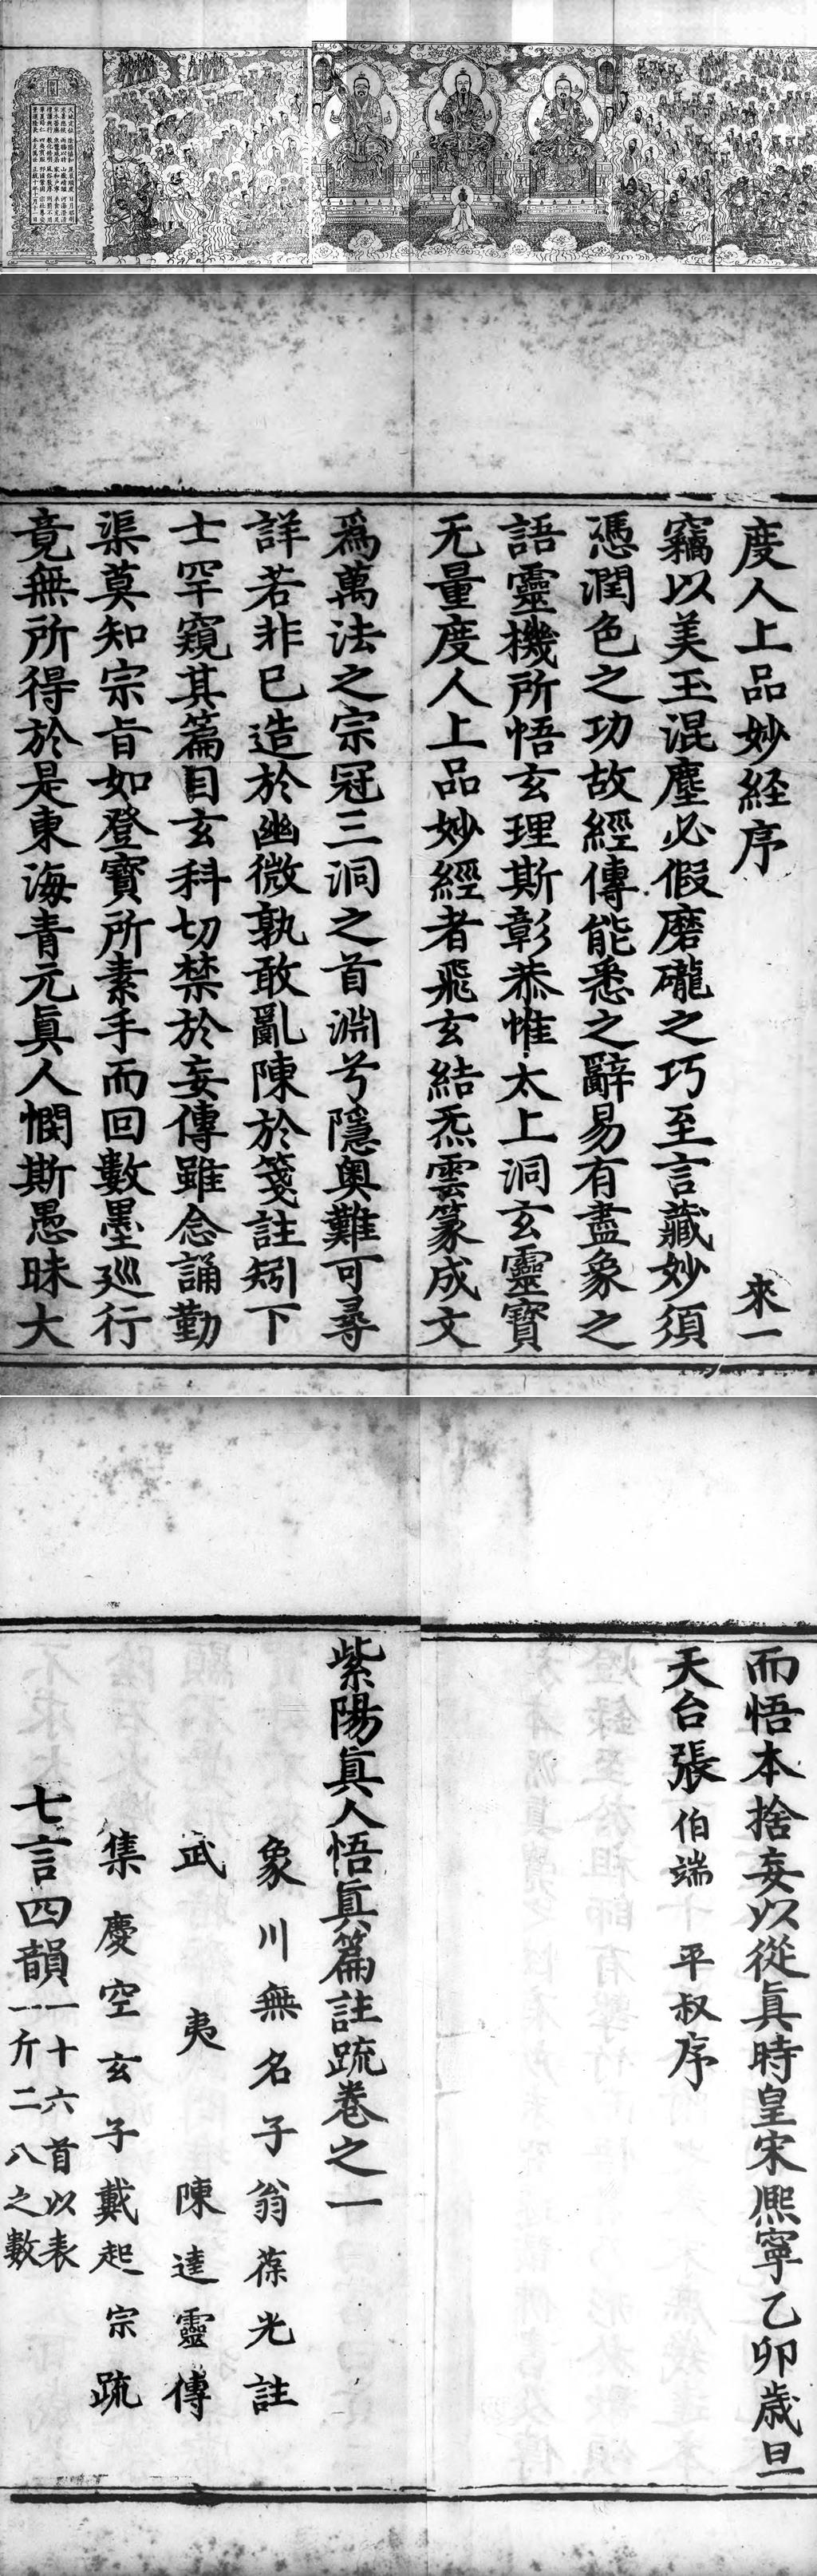 度人上品妙経序 來一
竊以美玉混塵必假磨礲之巧至言藏妙須
憑潤色之功故經傳能悉之辭易有盡象之
語靈機所悟玄理斯彰恭惟太上洞玄靈寶
无量度人上品妙經者飛玄結炁雲篆成文
爲萬法之宗冠三洞之首淵兮隱奧難可尋
詳若非已造於幽微孰敢亂陳於箋註矧下
士罕窺其篇目玄科切禁於妄傳雖念誦勤
渠莫知宗旨如登寶所素手而回數墨廵行
竟無所得於是東海青元真人憫斯愚昧大
而悟本捨妄以從眞時皇宋熈寧乙卯歳旦
天台張伯端平叔序
紫陽眞人悟眞篇註䟽卷之一
象川無名子翁葆光註
武夷陳達靈傳
集慶空玄子戴起宗䟽
七言四韻一十六首以表
一斤二八之數